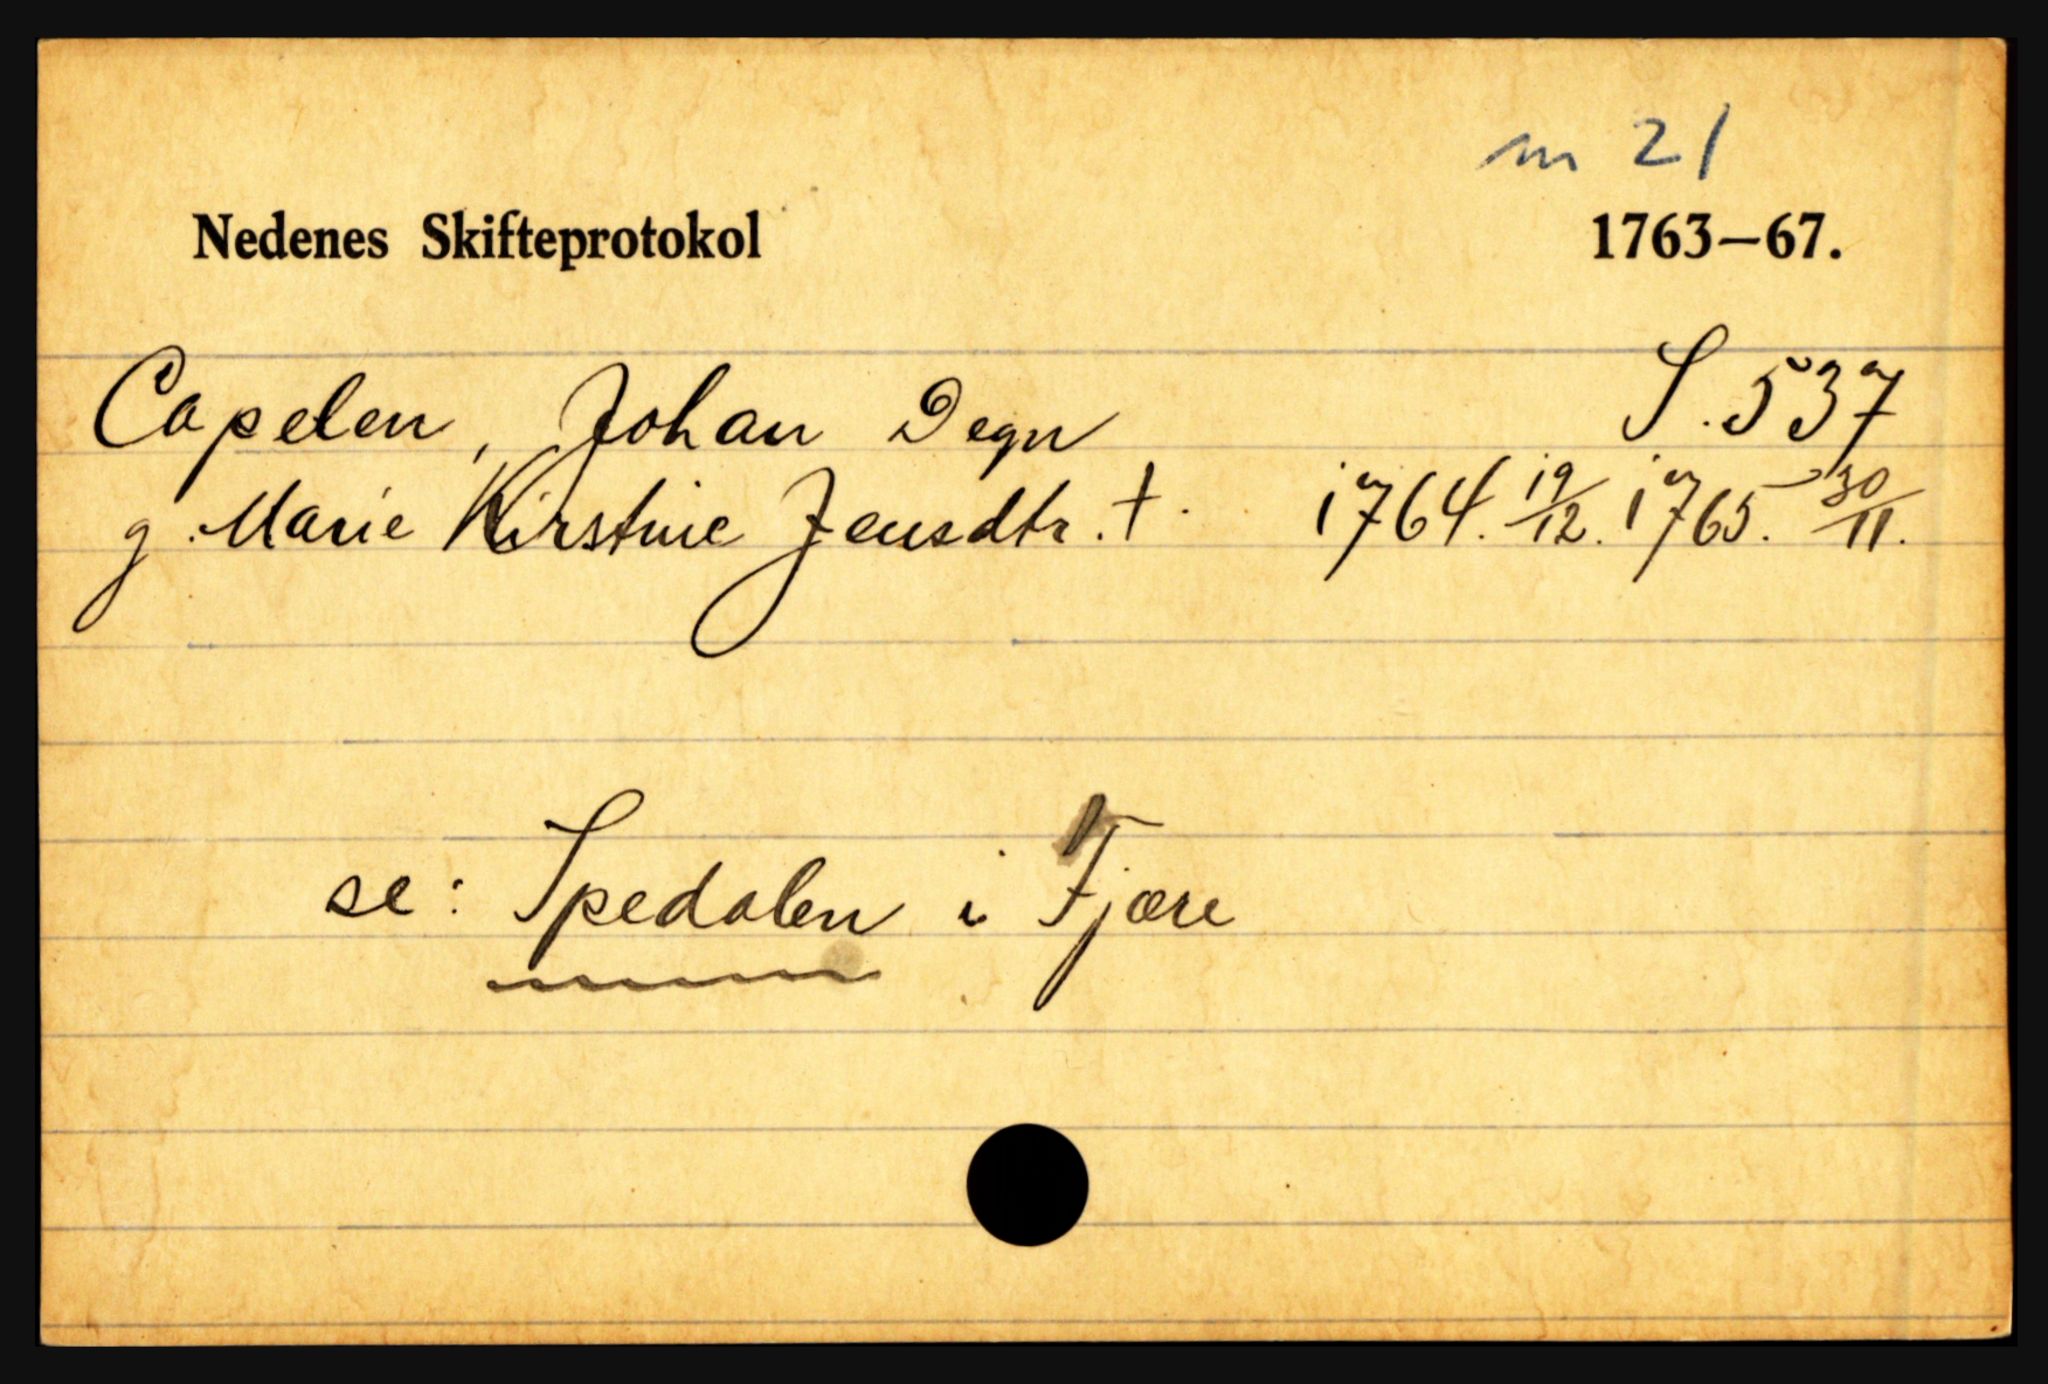 m 21
Nedenes Skifteprotokol 1763–67.
Capelen, Johan Degn S. 537
g. Marie Kirstine Jensdtr. † 1764. 19/12. 1765. 30/11.
se: Spedalen i Fjære